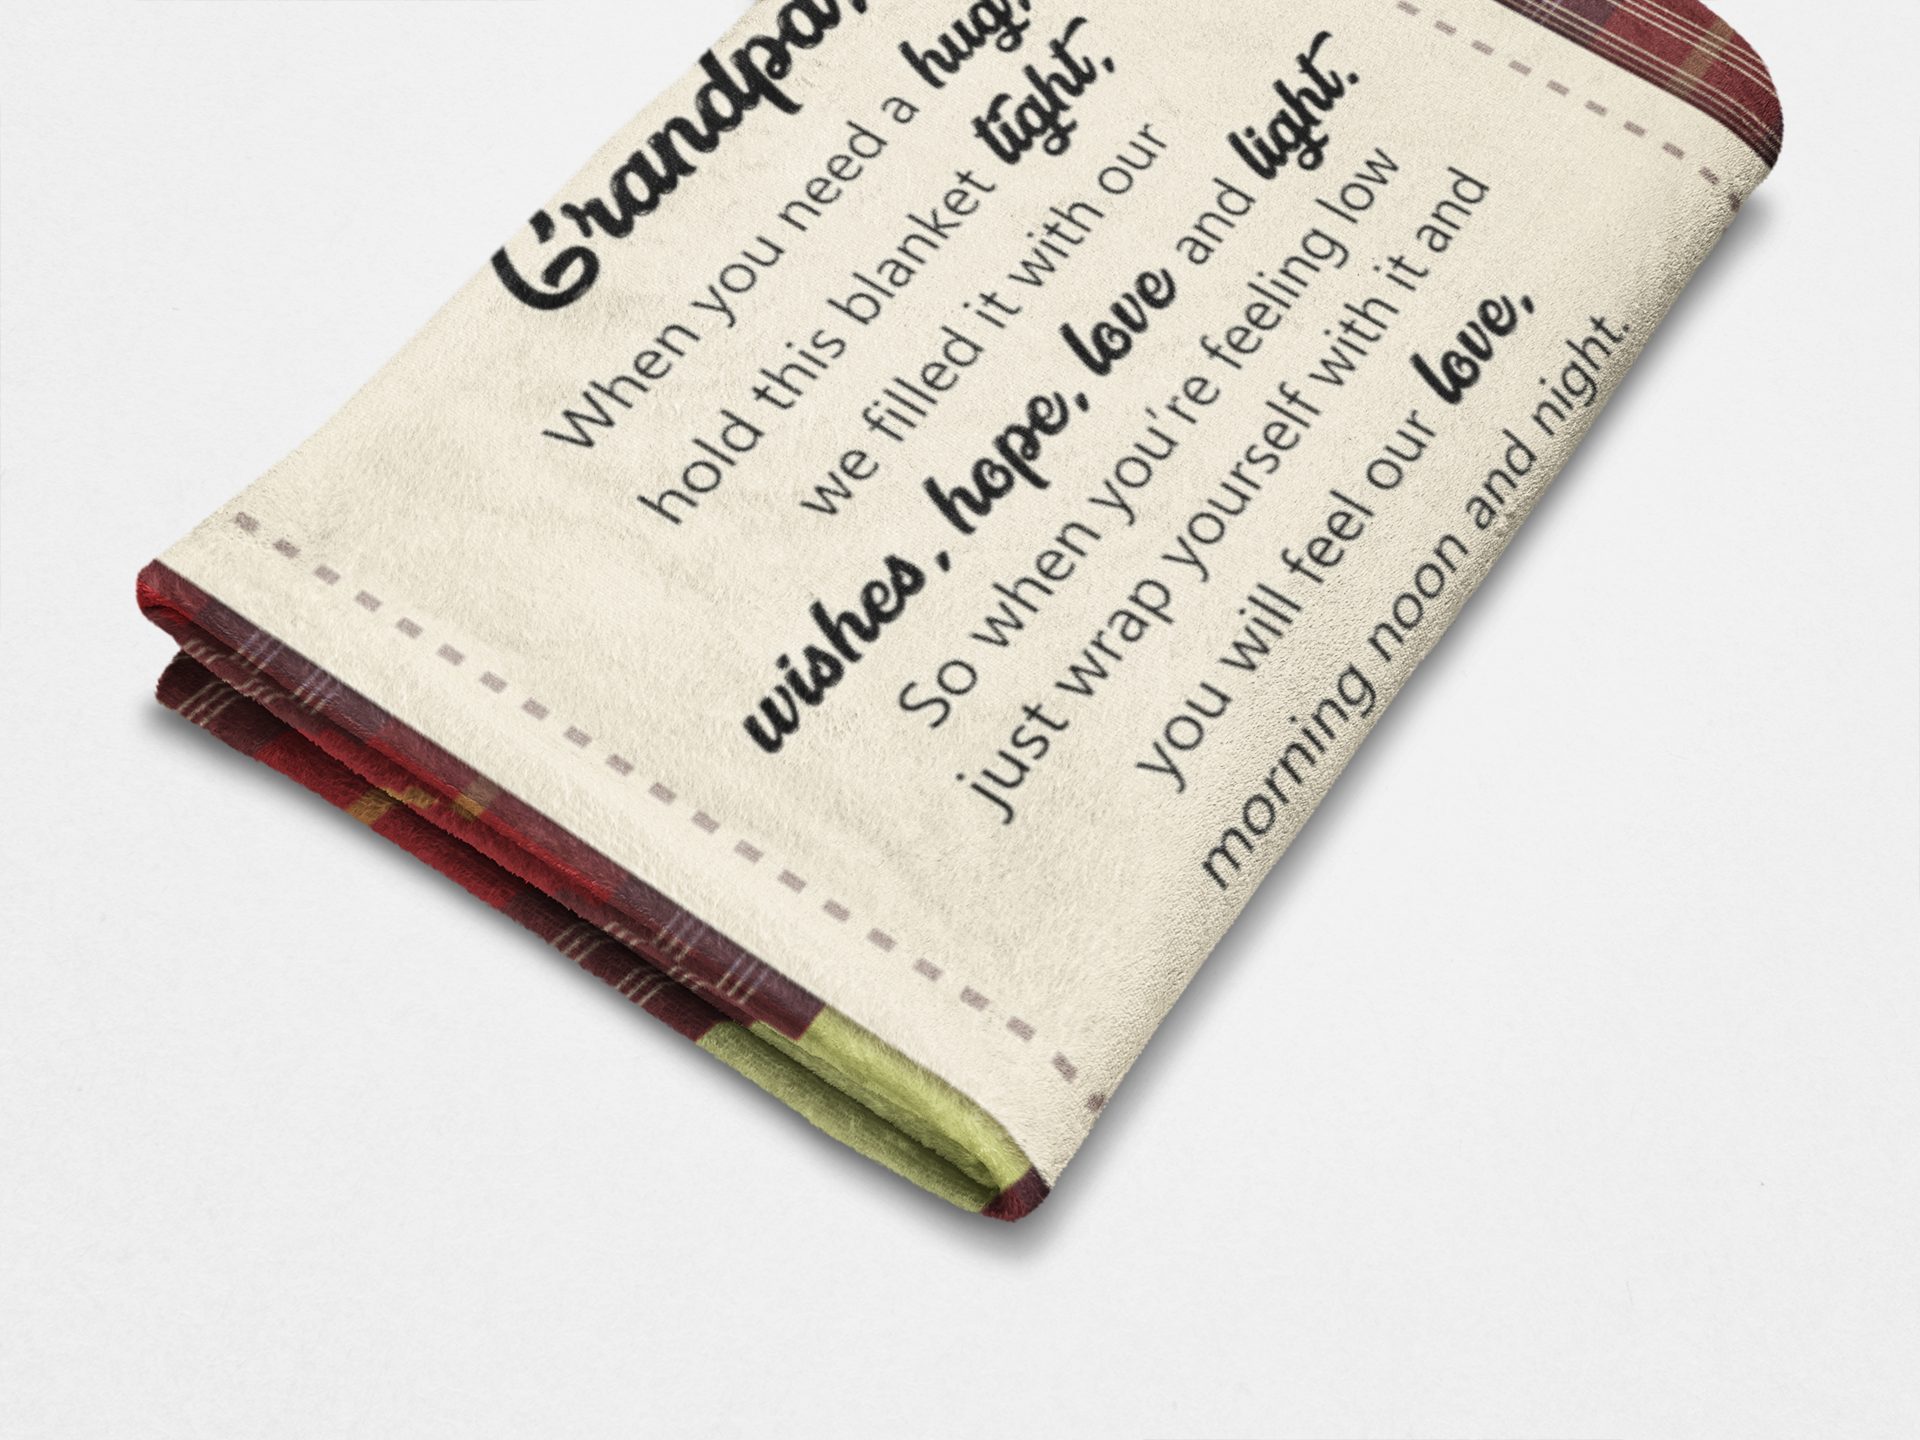 Grandpa,
When you need a hug,
hold this blanket tight,
we filled it with our
wishes, hope, love and light.
So when you're feeling low
just wrap yourself with it and
you will feel our love,
morning noon and night.